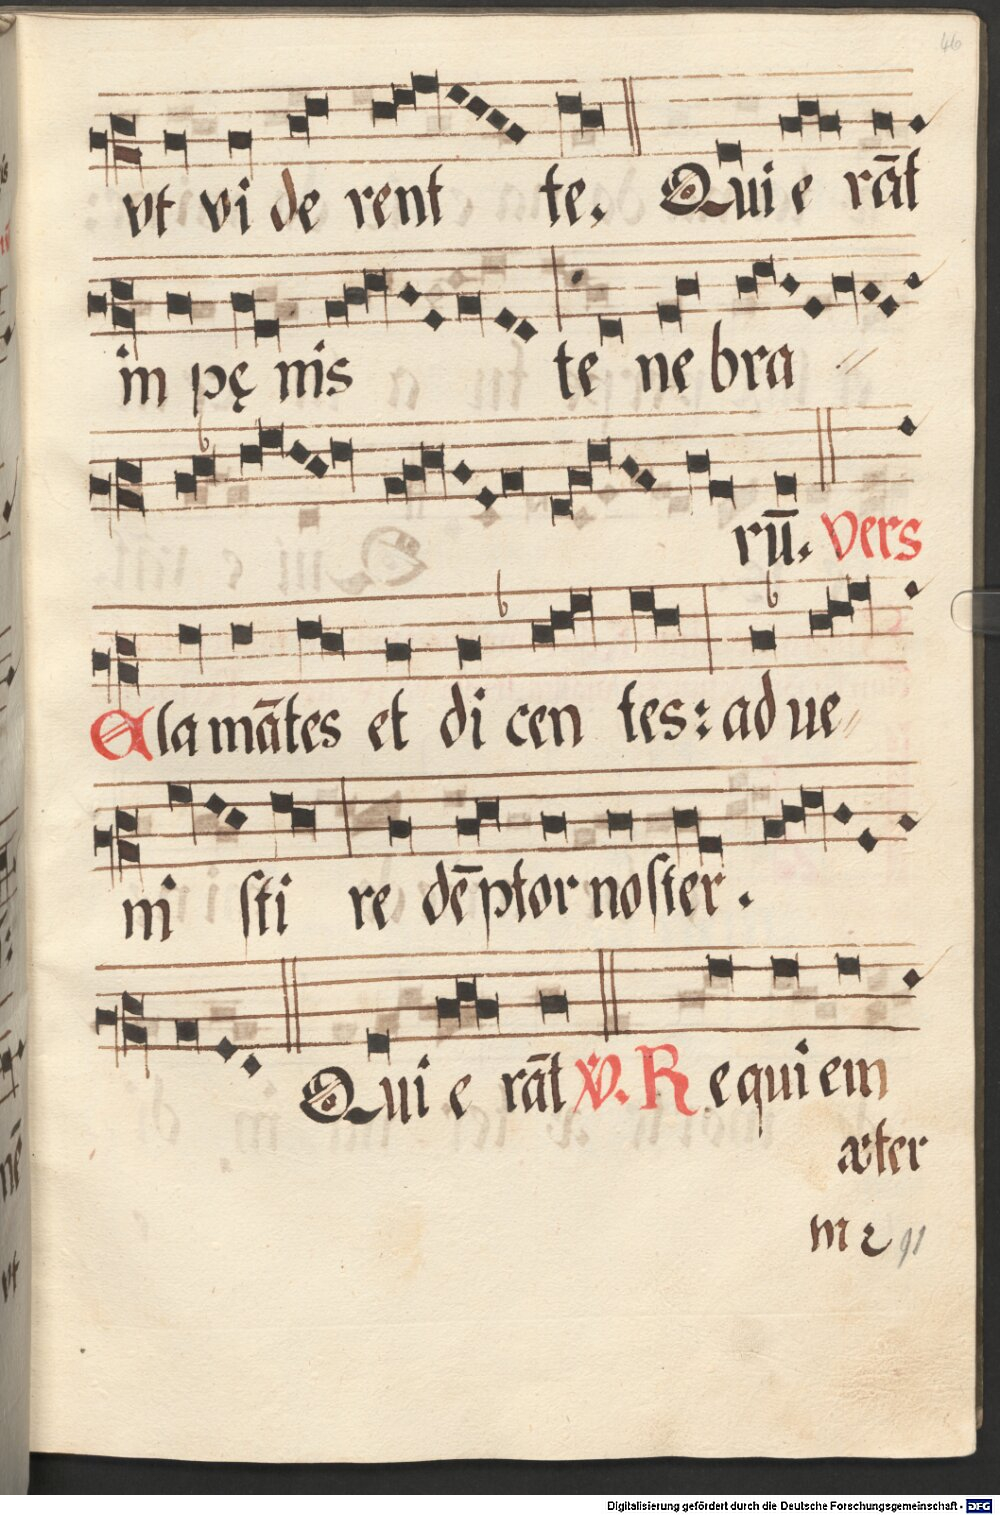 46
vt vi de rent te. Qui e rāt
in pę nis te ne bra
rū. vers
Clamātes et di cen tes: ad ue
ni sti re dēptor noster.
Qui e rāt v. R equi em
æter
m 2 91
Digitalisierung gefördert durch die Deutsche Forschungsgemeinschaft - DFG